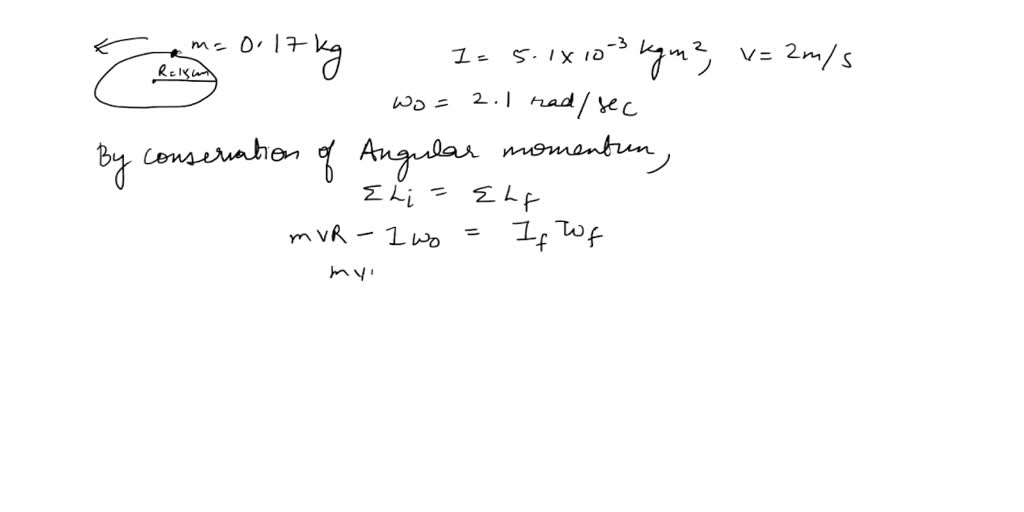 m = 0.17 kg
I = 5.1 x 10⁻³ kgm², v = 2m/s
ω0 = 2.1 rad/sec
By conservation of Angular momentum,
ΣLi = ΣLf
mVR - Iω0 = If ωf
mv